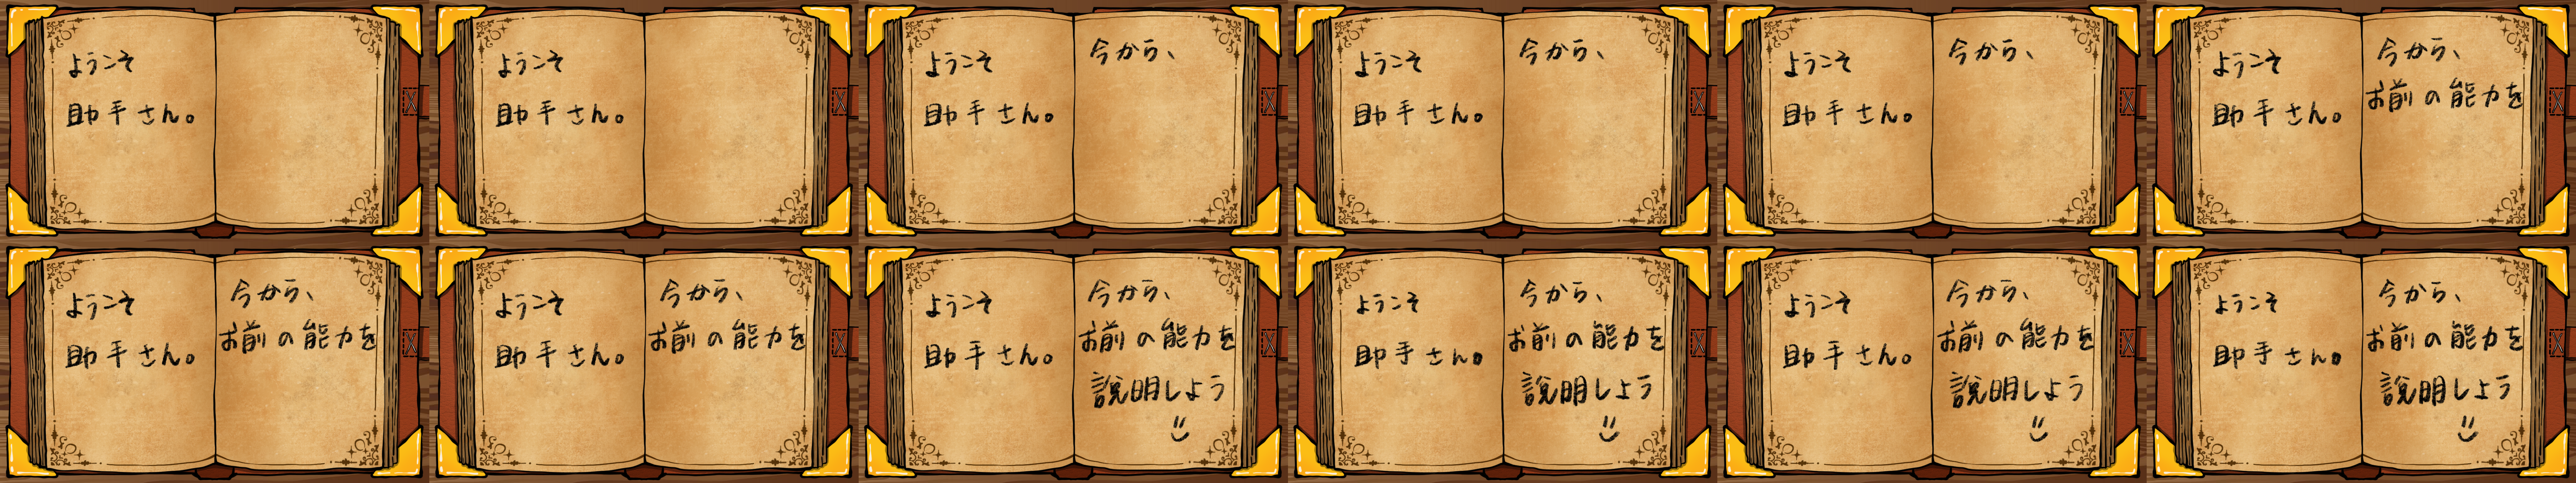 ようそ
助手さん。
ようこそ
助手さん。
ようこそ
助手さん。
今から、
ようこそ
助手さん。
今から、
ようこそ
助手さん。
今から、
ようこそ
助手さん。
今から、
お前の能力を
ようこそ
助手さん。
今から、
お前の能力を
ようこそ
助手さん。
今から、
お前の能力を
ようこそ
助手さん。
今から、
お前の能力を
説明しよう
ようこそ
助手さん。
今から、
お前の能力を
説明しよう
ようこそ
助手さん。
今から、
お前の能力を
説明しよう
ようこそ
助手さん。
今から、
お前の能力を
説明しよう